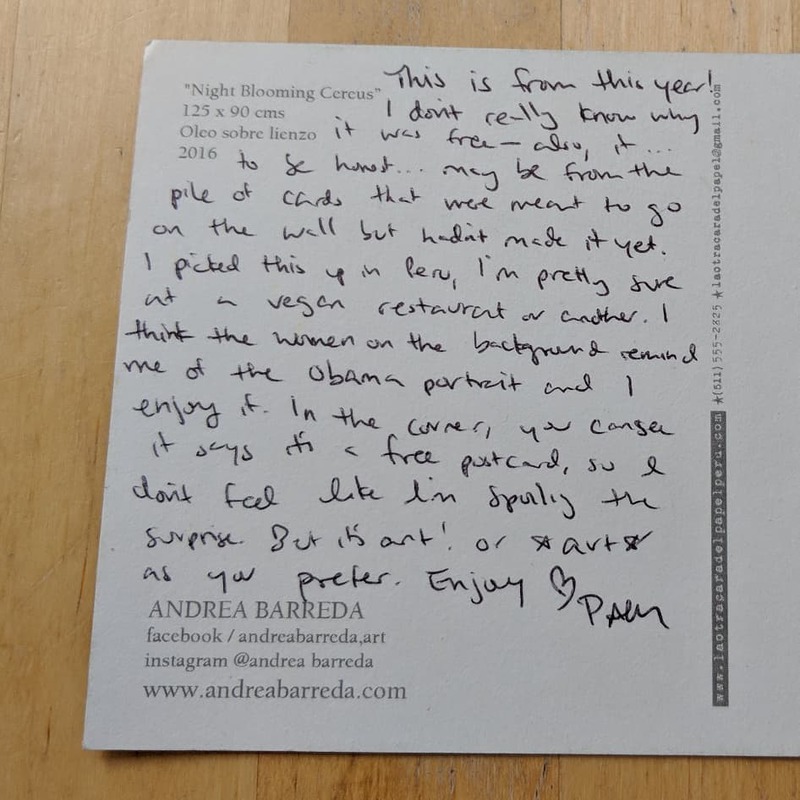 "Night Blooming Cereus"
125 x 90 cms
Oleo sobre lienzo
2016
This is from this year!
I don't really know why
it was free – also, it...
to be honest... may be from the
pile of cards that were meant to go
on the wall but hadn't made it yet.
I picked this up in Peru, I'm pretty sure
at a vegan restaurant or another. I
think the women on the background remind
me of the Obama portrait and I
enjoy it. In the corner, you can see
it says it's a free postcard, so I
don't feel like I'm spoiling the
surprise. But it's art! or *art*
as you prefer. Enjoy ♡
PAM
ANDREA BARREDA
facebook / andreabarreda,art
instagram @andrea barreda
www.andreabarreda.com
www.laotracaradelpapelperu.com ★(511) 555-2825 ★laotracaradelpapel@gmail.com